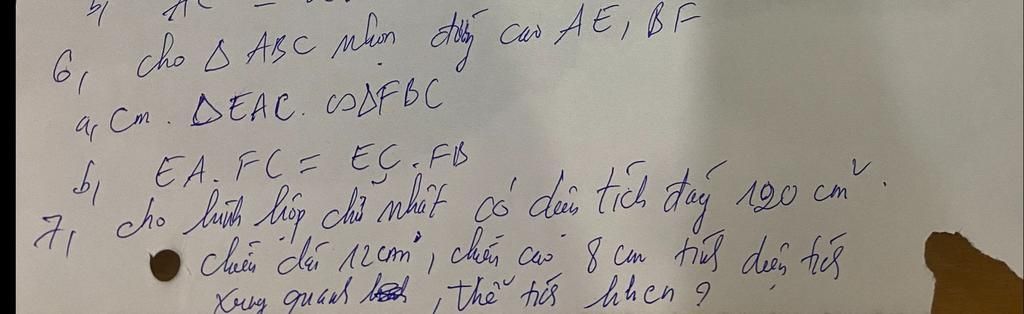 b, AC =
6, cho Δ ABC nhọn đường cao AE, BF
a, Cm. ΔEAC. ∽ΔFBC
b, EA.FC = EC.FB
7, cho hình hộp chữ nhật có diện tích đáy 120 cm²
chiều dài 12cm, chiều cao 8 cm tính diện tích
xung quanh, thể tích hhcn?